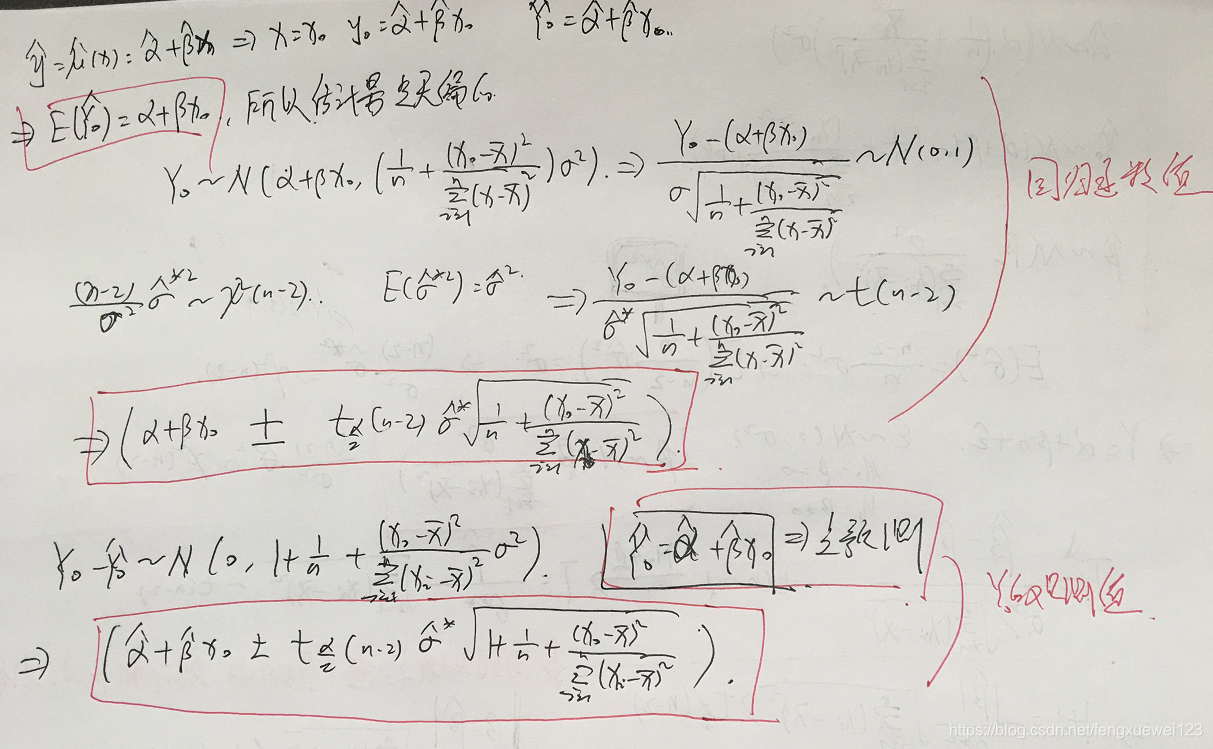 ŷ = μ̂(x) = α̂ + β̂x ⇒ x = x₀ y₀ = α̂ + β̂x₀ Ŷ₀ = α̂ + β̂x₀..
⇒ E(Ŷ₀) = α + βx₀, 所以估计量是无偏的
Y₀ ~ N(α + βx₀, (1/n + (x₀ - x̄)²/∑ⁿᵢ₌₁(xᵢ - x̄)²)σ²). ⇒ (Y₀ - (α + βx₀))/(σ√(1/n + (x₀ - x̄)²/∑ⁿᵢ₌₁(xᵢ - x̄)²)) ~ N(0,1)
回归函数值
(n-2)/σ² σ̂*² ~ χ²(n-2).. E(σ̂*²) = σ̂². ⇒ (Y₀ - (α + βx₀))/(σ̂*√(1/n + (x₀ - x̄)²/∑ⁿᵢ₌₁(xᵢ - x̄)²)) ~ t(n-2)
⇒ (α + βx₀ ± t_{α/2}(n-2) σ̂*√(1/n + (x₀ - x̄)²/∑ⁿᵢ₌₁(xᵢ - x̄)²)).
Y₀ - Ŷ₀ ~ N(0, 1 + 1/n + (x₀ - x̄)²/∑ⁿᵢ₌₁(xᵢ - x̄)² σ²). Ŷ₀ = α̂ + β̂x₀ ⇒ 点预测
Y₀的观测值
⇒ (α̂ + β̂x₀ ± t_{α/2}(n-2) σ̂*√(1 + 1/n + (x₀ - x̄)²/∑ⁿᵢ₌₁(xᵢ - x̄)²)).
https://blog.csdn.net/fengxuewei123